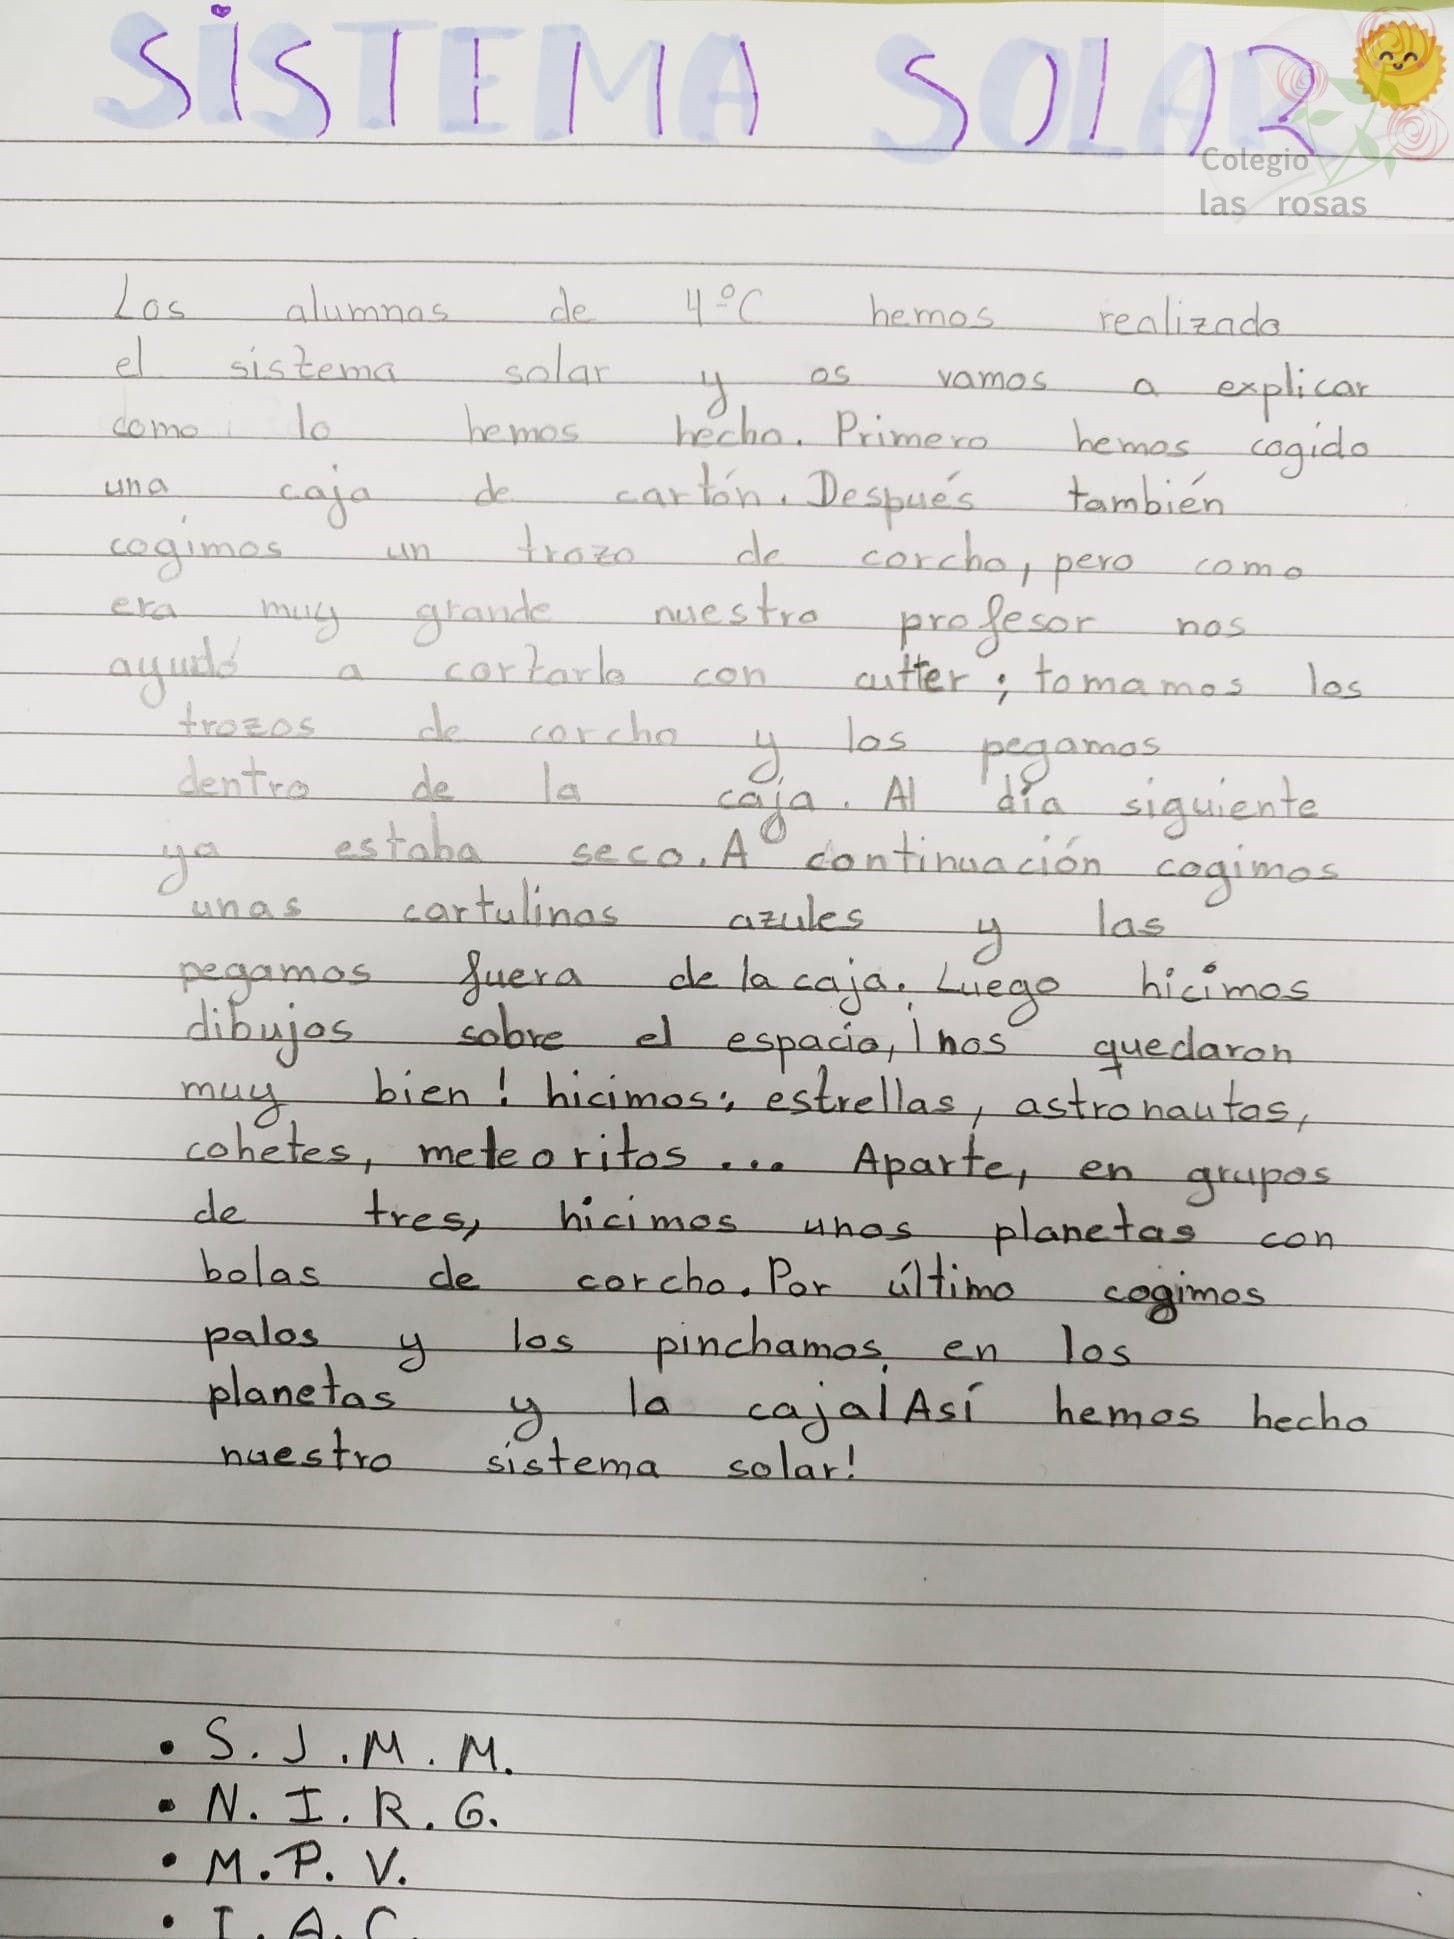 SiSTEMA SOLAR
Colegio
las rosas
Los alumnos de 4ºC hemos realizado
el sistema solar y os vamos a explicar
como lo hemos hecho. Primero hemos cogido
una caja de cartón. Después también
cogimos un trozo de corcho, pero como
era muy grande nuestro profesor nos
ayudó a cortarlo con cutter; tomamos los
trozos de corcho y los pegamos
dentro de la caja. Al día siguiente
ya estaba seco. A continuación cogimos
unas cartulinas azules y las
pegamos fuera de la caja. Luego hicimos
dibujos sobre el espacio, ¡nos quedaron
muy bien! hicimos: estrellas, astronautas,
cohetes, meteoritos... Aparte, en grupos
de tres, hicimos unos planetas con
bolas de corcho. Por último cogimos
palos y los pinchamos en los
planetas y la caja¡Así hemos hecho
nuestro sistema solar!
• S.J.M.M.
• N.I.R.G.
• M.P.V.
• I.A.C.